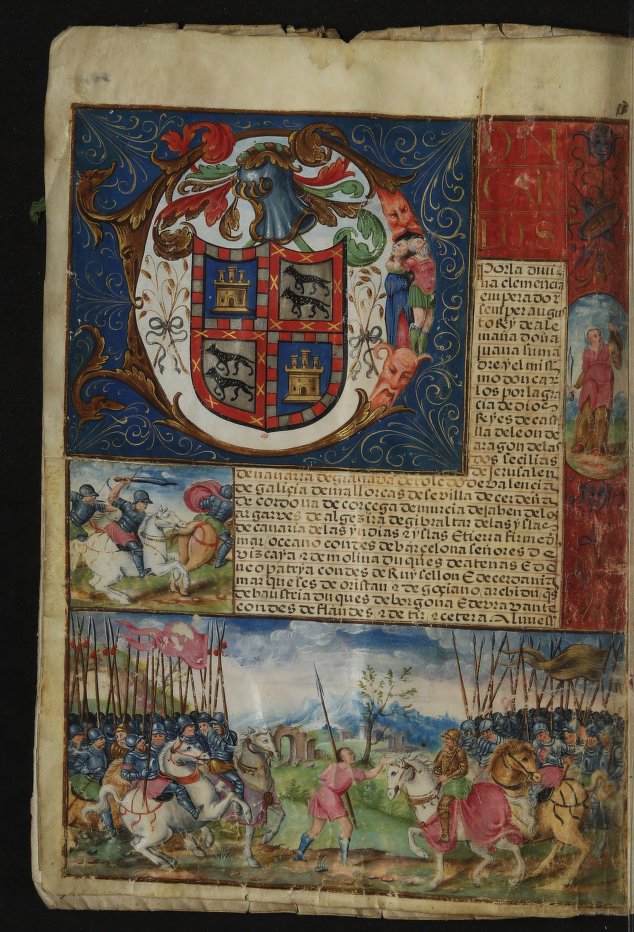 ON
CAR
LOS
Porla diui
na clemencia
emperador
semper augus
to Rey de ale
maña doña
juana su ma
dre y el mis
mo don car
los por la gra
cia de dios
Reyes de cas ti
lla de leon de
aragon de las
dos secilias
de Jerusalen
de nauarra de granada de toledo de valencia
de galiçia de mallorcas de seuilla de cerdeña
de cordoua de corçega de murcia de jahen del os
algarues de algezira de gibraltar de las ysla s
de canaria de las yndias e yslas e tierra firme d l
mar oceano condes de barcelona señores d e
vizcaya e de molina duques de atenas e d e
neopatria condes de Ruysellon e de cerdania
marqueses de oristan e de goçiano archiduqs
de austria duques de borgoña e de brauante
condes de flandes e de tirol etcetera